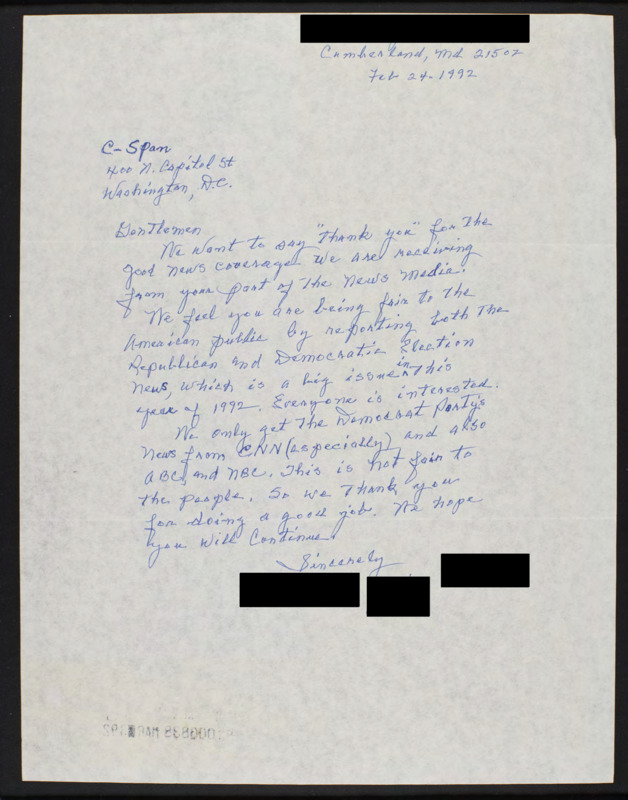 Cumberland, Md 21502
Feb 24-1992
C-Span
400 N. Capitol St
Washington, D.C.
Gentlemen
We want to say "Thank you" for the
good news coverage we are receiving
from your part of The News Media.
We feel you are being fair to the
American public by reporting both The
Republican and Democratic Election
News, which is a big issue in This
year of 1992. Everyone is interested.
We only get The Democrat Party's
News from CNN (especially) and also
ABC, and NBC. This is not fair to
the people. So we Thank you
for doing a good job. We hope
you Will Continue.
Sincerely